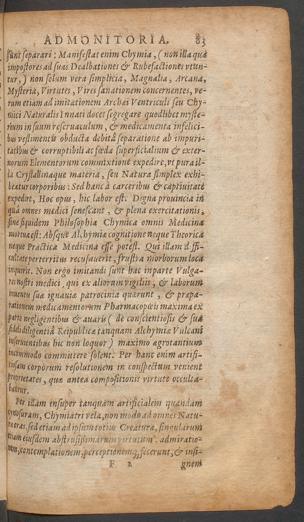 ADMONITORIA. 83
sunt separari: Manifestat enim Chymia, (non illa quâ
impostores ad suas Dealbationes & Rubefactiones utun-
tur,) non solùm vera simplicia, Magnalia, Arcana,
Mysteria, Virtutes, Vires sanationem concernentes, ve-
rum etiam ad imitationem Archei Ventriculi seu Chy-
mici Naturalis innati docet segregare quodlibet myste-
rium in suum reservaculum, & medicamenta infelici-
bus vestimentis obducta debitâ separatione ab impuri-
tatibus & corruptibili ac fœda superficialium & exter-
norum Elementorum commixtione expedire, ut pura il-
la Crystallinaque materia, seu Natura simplex exhi-
beatur corporibus: Sed hanc à carceribus & captivitate
expedire, Hoc opus, hic labor est. Digna provincia in
quâ omnes medici senescant, & plena exercitationis,
sine quidem Philosophia Chymica omnis Medicina
mortua est: Absque Alchymiæ cognitione neque Theorica
neque Practica Medicina esse potest. Qui illam difficultate
perterriti recusaverit, frustra morborum loca
inquirit. Non ergò imitandi sunt hac in parte Vulga-
res nostri medici, qui ex aliorum vigiliis, & laborum
suâ ignavia patrocinia quærunt, & præpa-
rationem medicamentorum Pharmacopœis maxima ex
parte negligentibus & avaris (de conscientiosis & suæ
fidei diligentis Reipublicæ tanquam Alchymiæ Vulcani
inservientibus hîc non loquor) maximo ægrotantium
committere solent. Per hanc enim artifi-
corporum resolutionem in conspectum venient
proprietates, quæ antea compositionis virtute occulta-
bantur.
Per illam insuper tanquam artificialem quandam
cynosuram, Chymiatri vela, non modò ad omnes Natu-
sed etiam ad ipsum totius Creaturæ, singularum
etiam ejusdem abstrusissimarum virtutum admiratio-
nem, contemplationem, perceptionemq; fecerunt, & insi-
F 2 gnem